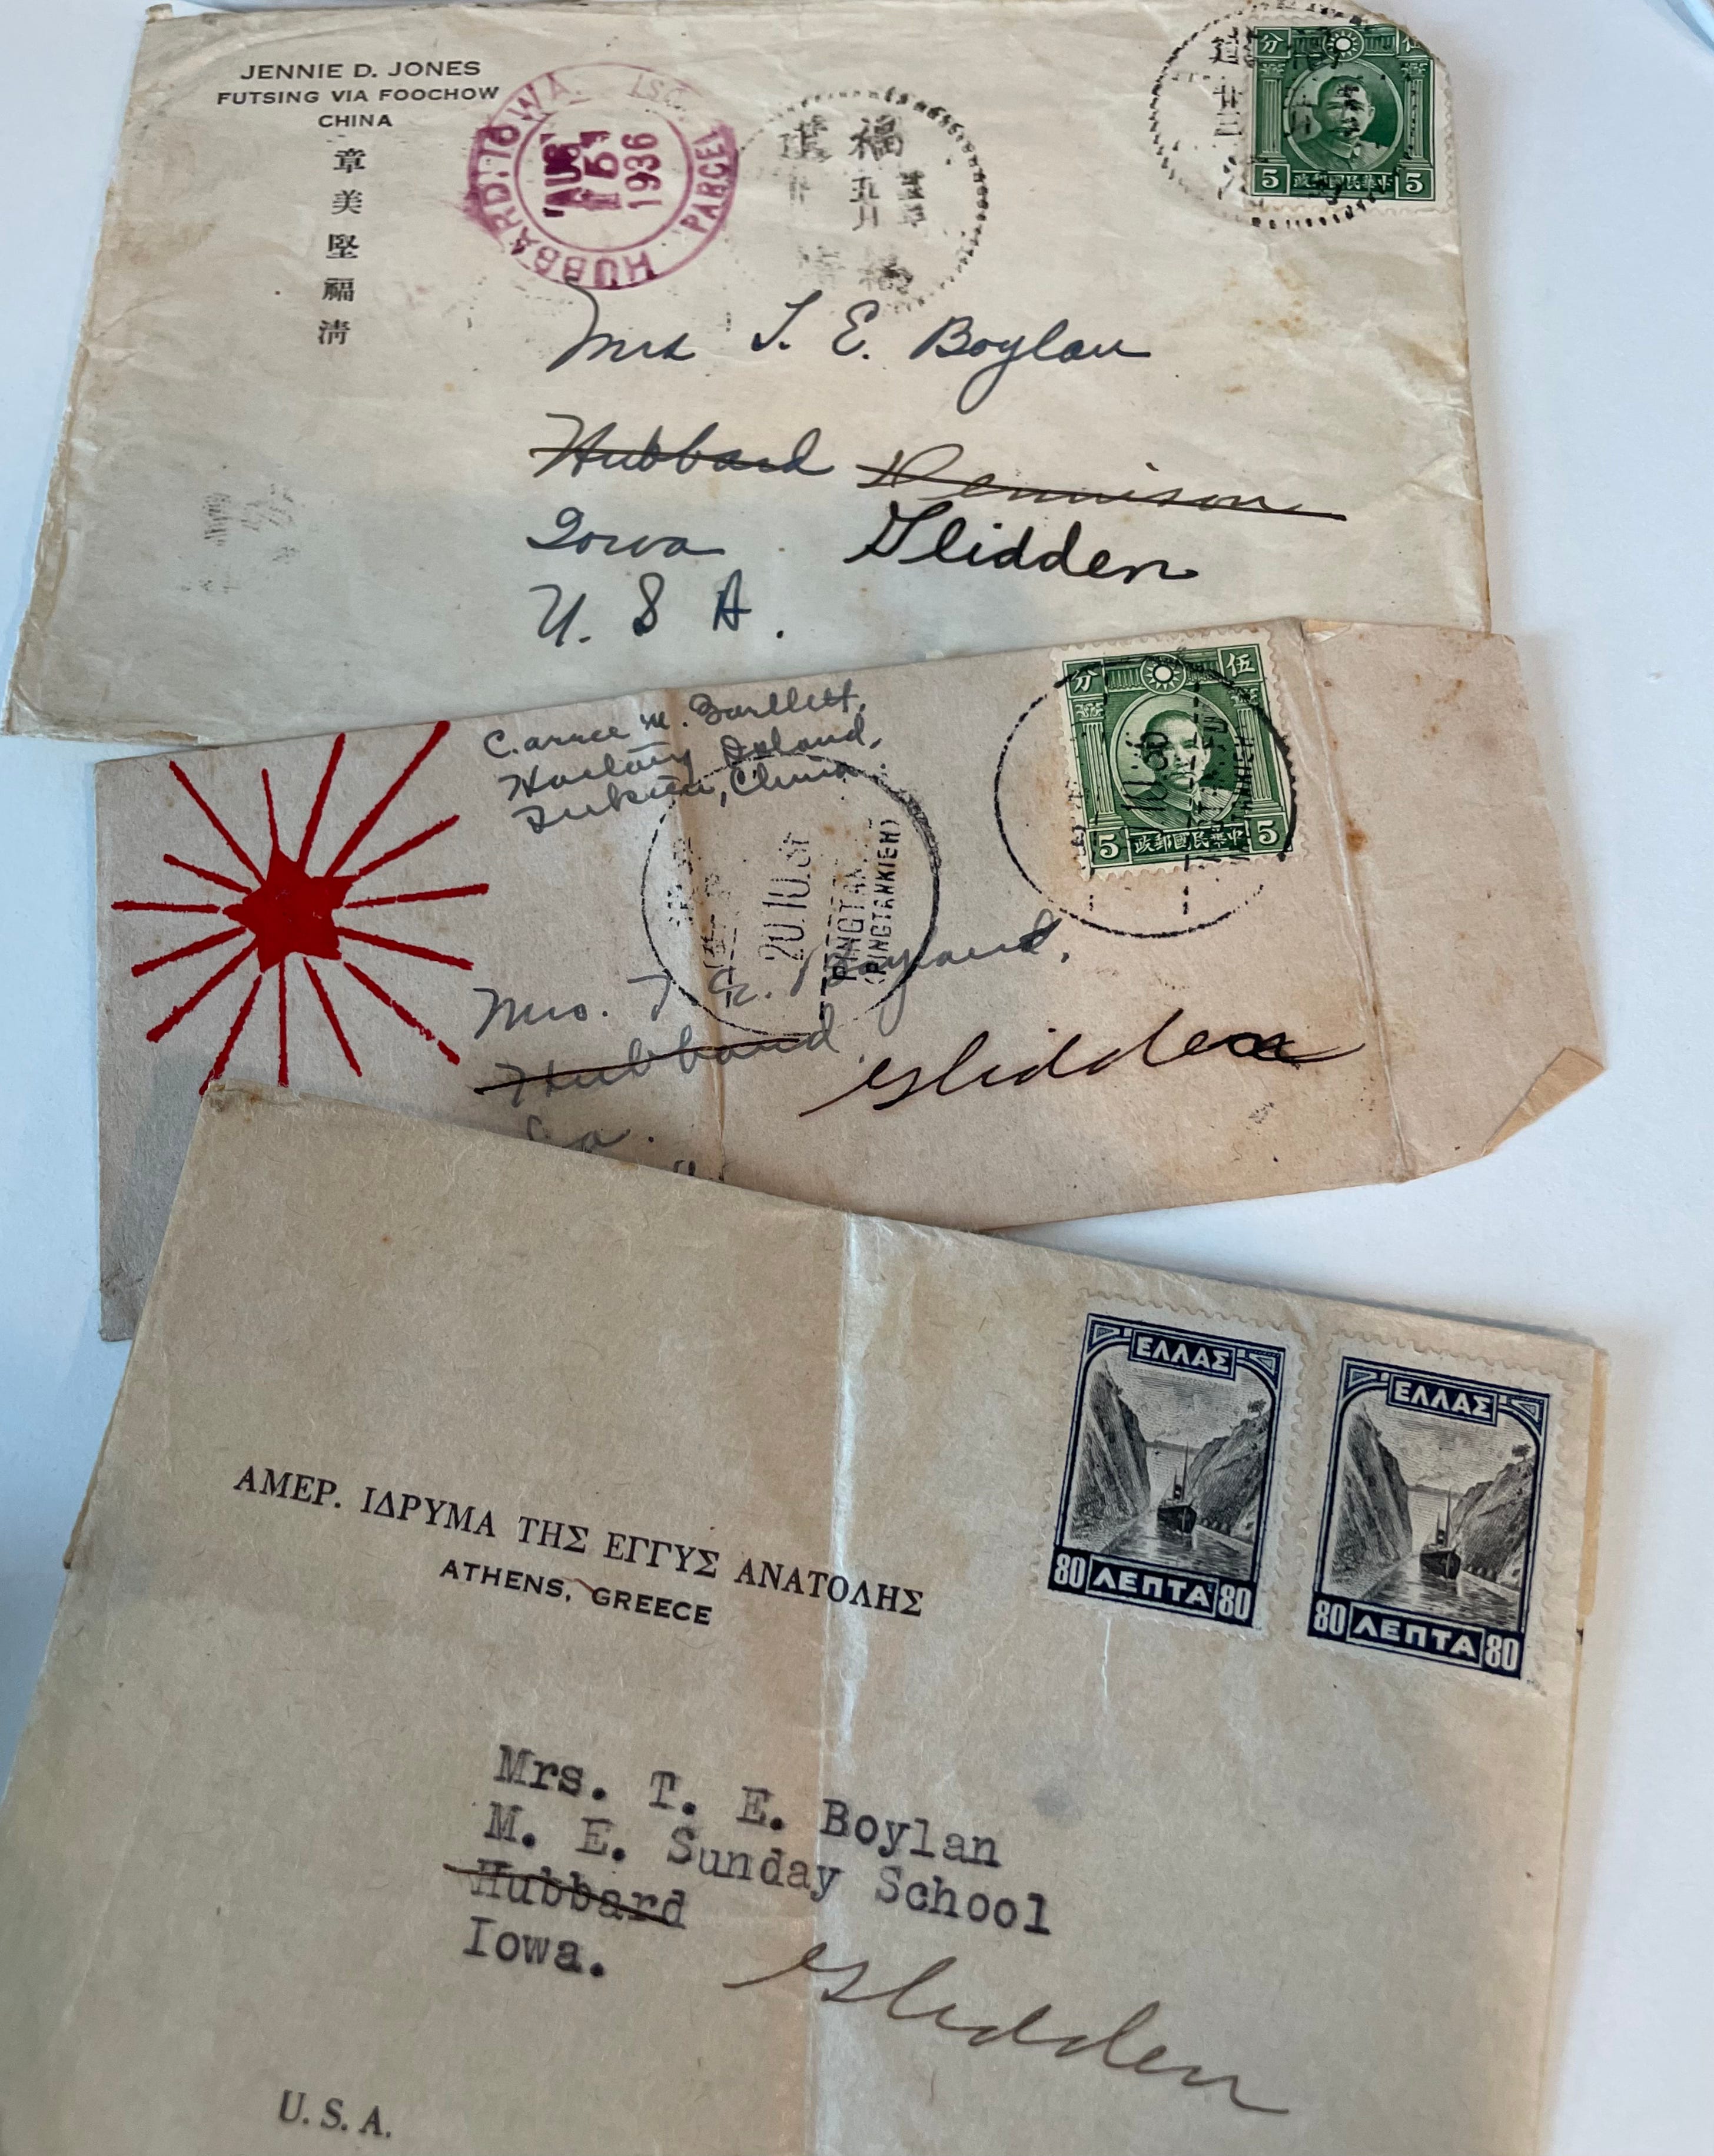 JENNIE D. JONES
FUTSING VIA FOOCHOW
CHINA
章
美
堅
福
清
HUBBARD, IOWA.
AUG
15
1936
PARCEL
福
建
分
伍
5 政郵國民華中 5
Mrs T. E. Boylan
Hubbard Dennison
Iowa. Glidden
U. S A.
Carrie M. Bartlett,
Haitang Island,
Fukien, China.
20.10.
PINGTAN
(PINGTANKIEN)
分 伍
5 政郵國民華中 5
Mrs. T. E. Boyland,
Hubbard, Glidden
Ia.
ΕΛΛΑΣ
80 ΛΕΠΤΑ 80
ΕΛΛΑΣ
80 ΛΕΠΤΑ 80
ΑΜΕΡ. ΙΔΡΥΜΑ ΤΗΣ ΕΓΓΥΣ ΑΝΑΤΟΛΗΣ
ATHENS, GREECE
Mrs. T. E. Boylan
M. E. Sunday School
Hubbard
Iowa.
Glidden
U. S. A.